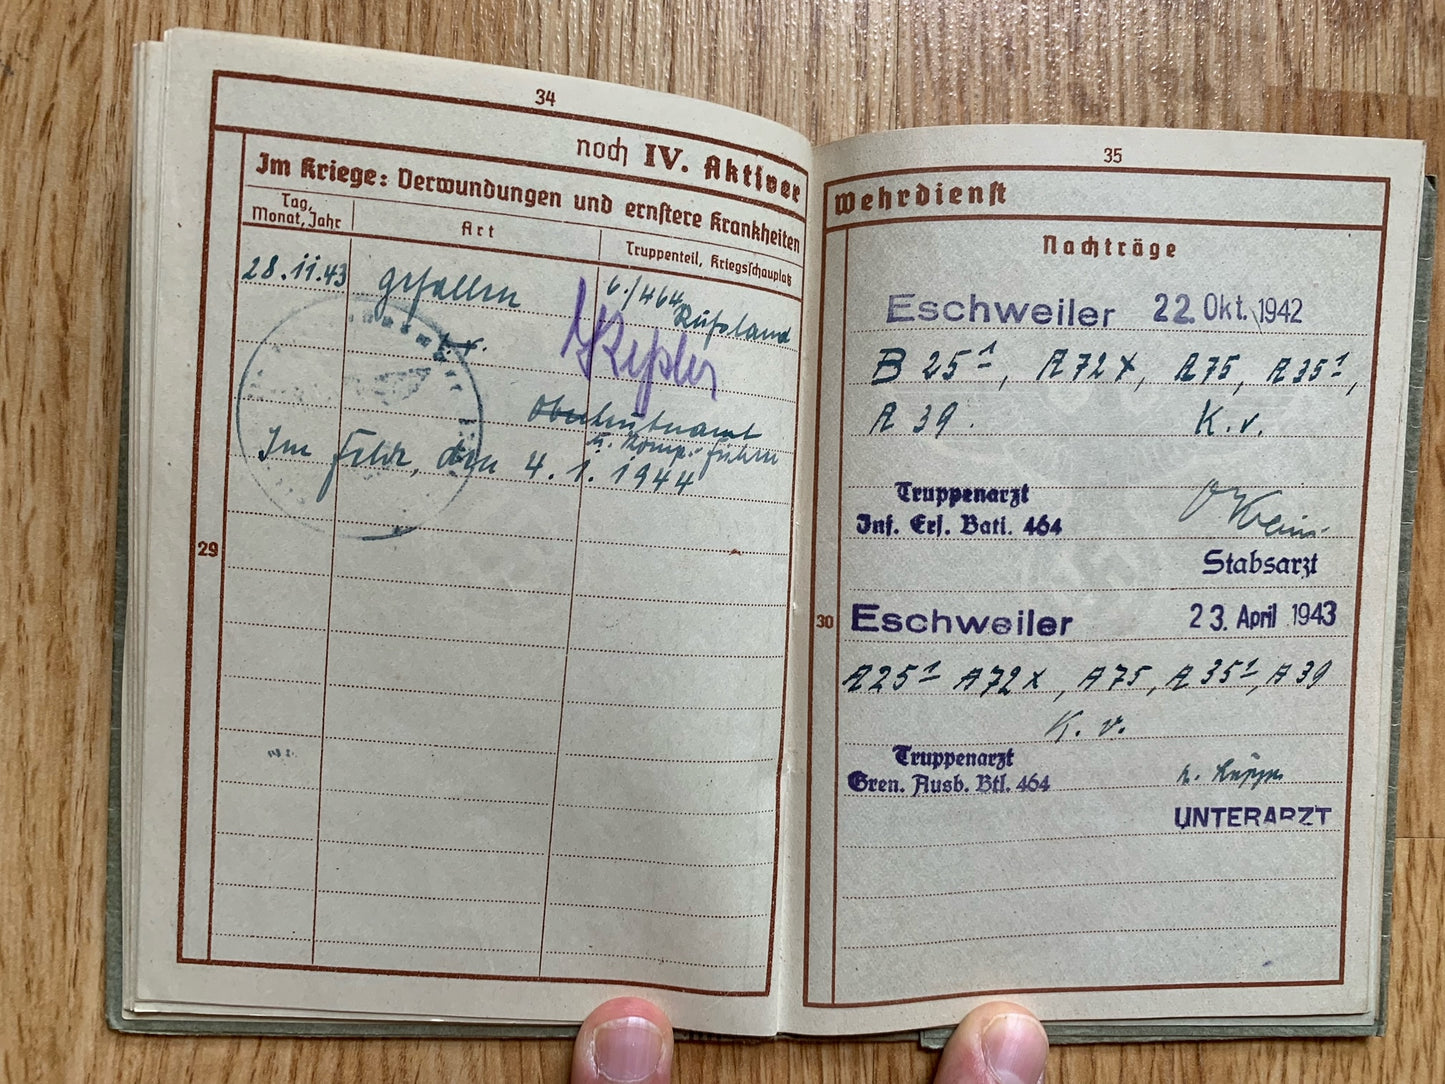 34
noch IV. Aktiver
Im Kriege: Verwundungen und ernstere Krankheiten
Tag, Monat, Jahr
Art
Truppenteil, Kriegsschauplatz
28.11.43 gefallen 6./464 Rußland
Oberleutnant
u. Komp.-Führer
Im Felde, den 4.1.1944
29
35
Wehrdienst
Nachträge
Eschweiler 22. Okt. 1942
B 25¹, A 72 x, A 75, A 35¹,
A 39. K.v.
Truppenarzt
Inf. Ers. Batl. 464
Stabsarzt
30
Eschweiler 23. April 1943
A 25¹ A 72 x, A 75, A 35¹, A 39
K.v.
Truppenarzt
Gren. Ausb. Btl. 464
UNTERARZT